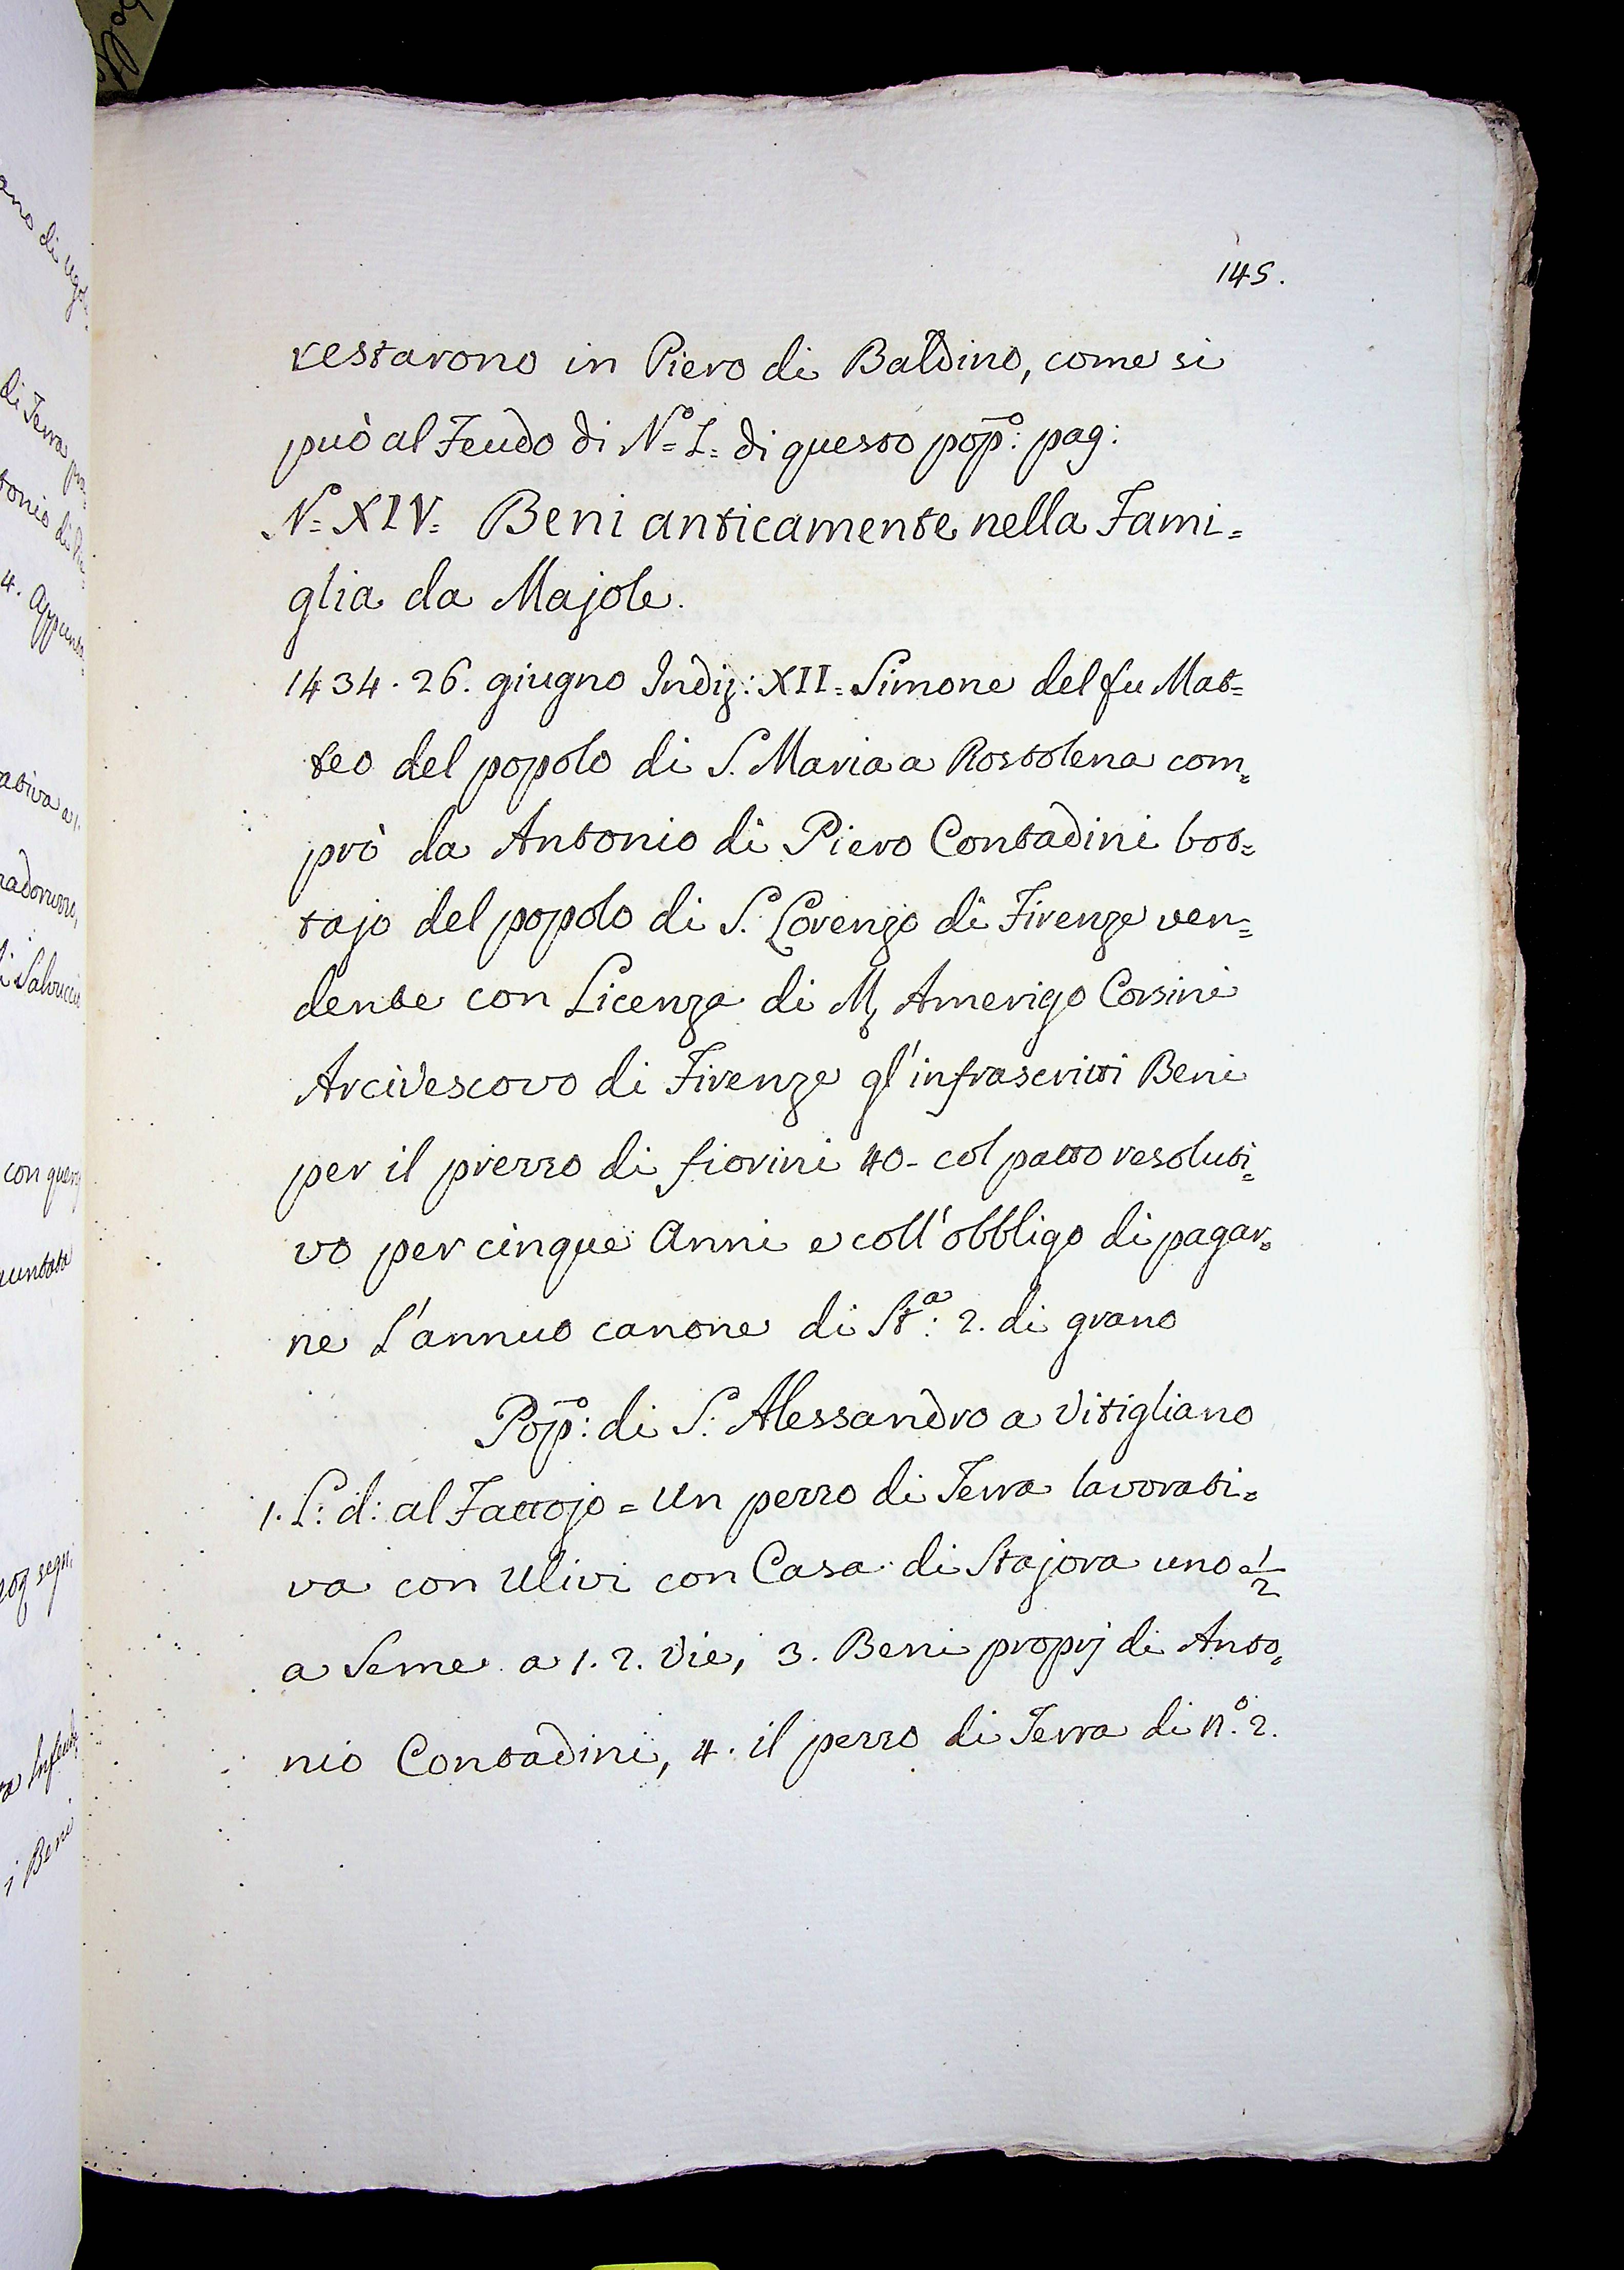 145.
restarono in Piero di Baldino, come si
può al Feudo di Nº= I= di questo pop̄º: pag:
Nº= XIV= Beni anticamente nella Fami=
glia da Majole.
1434. 26. giugno Indiz: XII= Simone del fu Mat=
teo del popolo di S. Maria a Rostolena com=
prò da Antonio di Piero Contadini bot=
tajo del popolo di S. Lorenzo di Firenze ven=
dente con Licenza di M, Amerigo Corsini
Arcivescovo di Firenze gl'infrascritti Beni
per il prezzo di fiorini 40- col patto resoluti=
vo per cinque Anni e coll'obbligo di pagar=
ne l'annuo canone di Stª: 2. di grano
Pop̄º: di S: Alessandro a Vitigliano
1. L: d: al Fattojo = Un pezzo di Terra lavorati=
va con Ulivi con Casa di Stajora uno 1/2
a Seme a 1. 2. Vie, 3. Beni proprj di Anto=
nio Contadini, 4. il pezzo di Terra di nº. 2.